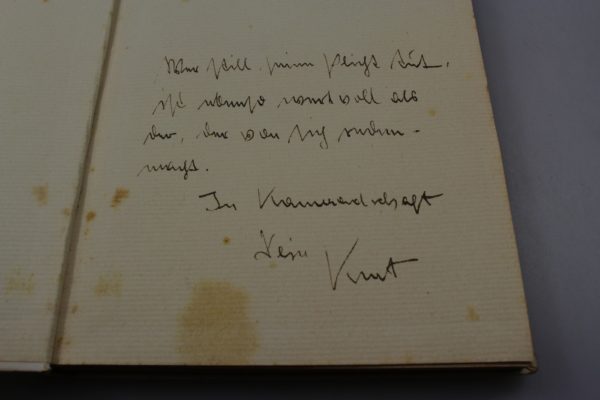 Wer still seine Pflicht tut,
ist ebenso wertvoll als
der, der von sich reden-
macht.
In Kameradschaft
Dein Kurt